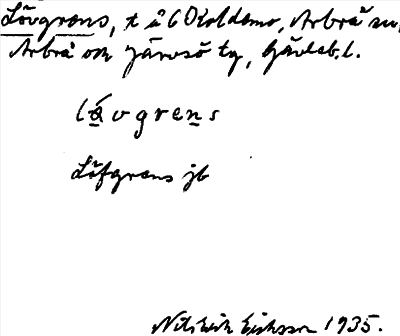 Lövgrens, t å 6 Koldemo, Arbrå sn,
Arbrå och Järvsö tg, Gävleb. l.
lǻvgrens
Löfgrens jb
Nils Erik Eriksson 1935.